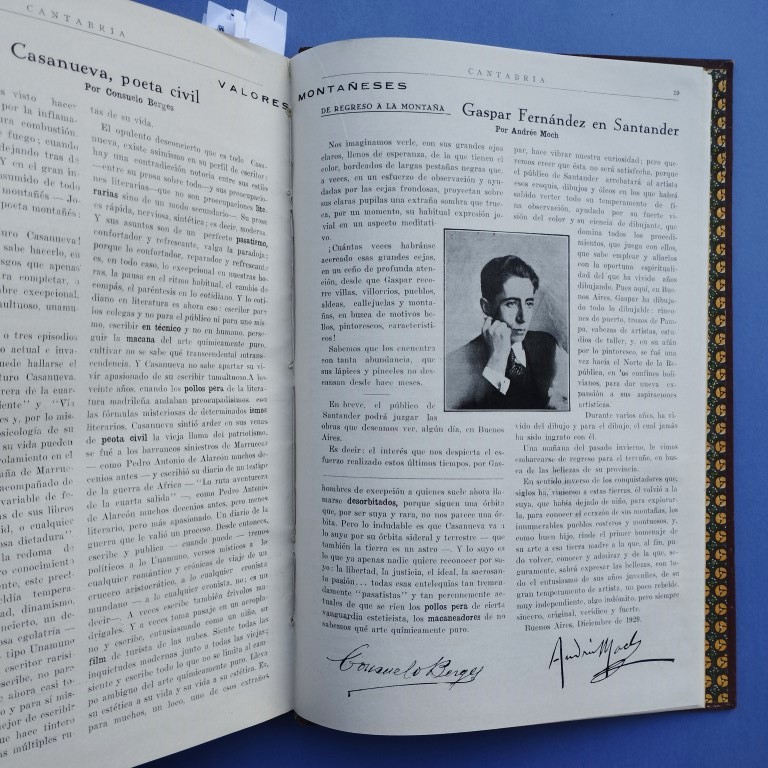 CANTABRIA
Casanueva, poeta civil
Por Consuelo Berges
visto hacer
por la inflama-
combustión.
fuego; cuando
dejando tras de
Y en el gran in-
sumido de todo
montañés — Jo-
poeta montañés:
turo Casanueva!
sabe hacerlo, en
sgos que apenas
ra completar, a
bre excepcional,
multuoso, unam-
o tres episodios
o actual e inva-
uede hallarse el
turo Casanueva.
rrera de la cuar-
iente" y "Vi-
es y, por lo mis-
sicología de su
su vida pueden
olamiento en el
aña de Marrue-
acompañado de
variable de fe-
as de sus libros
id, o cualquier
osa dictadura"
la redoma de
ro conocimiento
ente, este preci-
eldía tempera-
ad, dinamismo,
ncierto, un de-
osa egolatría —
tipo Unamuno
escritor rarísi-
escribe, no par-
ahora casi to-
y para sí mis-
mejor de escribir-
que hace tintero
as múltiples ru-
tás de su vida.
El opulento desconcierto que es todo Casa-
nueva, existe asimismo en su perfil de escritor:
hay una contradición notoria entre sus estilo
—entre su prosa sobre todo—y sus preocupacio-
nes literarias—que no son preocupaciones lite-
rarias sino de un modo secundario— Su prosa
es rápida, nerviosa, sintética; es decir, moderna.
Y sus asuntos son de un perfecto pasatismo,
confortador y refrescante, valga la paradoja;
porque lo confortador, reparador y refrescante
es, en todo caso, lo excepcional en nuestras ho-
ras, la pausa en el ritmo habitual, el cambio de
compás, el paréntesis en lo cotidiano. Y lo coti-
diano en literatura es ahora eso: escribir para
los colegas y no para el público ni para uno mis-
mo, escribir en técnico y no en humano, perse-
guir la macana del arte químicamente puro,
cultivar no se sabe qué transcendental intrans-
cendencia. Y Casanueva no sabe apartar su vi-
vir apasionado de su escribir tumultuoso. A los
veinte años, cuando los pollos pera de la litera-
tura madrileña andaban preocupadísimos con
las fórmulas misteriosas de determinados ismos
literarios, Casanueva sintió arder en sus venas
de poeta civil la vieja llama del patriotismo,
se fué a los barrancos siniestros de Marruecos
— como Pedro Antonio de Alarcón muchos de-
cenios antes — y escribió su diario de un testigo
de la guerra de Africa — "La ruta aventurera
de la cuarta salida" —, como Pedro Antonio
de Alarcón muchos decenios antes, pero menos
literario, pero más apasionado. Un diario de la
guerra que le valió un proceso. Desde entonces,
escribe y publica — cuando puede — trenos
políticos a lo Unamuno, versos místicos a lo
cualquier romántico y crónicas de viaje de un
crucero aristocrático, a lo cualquier cronista
mundano — a lo cualquier cronista, no; es un
decir—. A veces escribe también frívolos ma-
drigales. Y a veces toma pasaje en un aeropla-
no y escribe, entusiasmado como un niño, el
film de turista de las nubes. Siente todas las
inquietudes modernas junto a todas las viejas;
siente y escribe todo lo que no se limita al cam-
po ambiguo del arte químicamente puro. Lleva
su estética a su vida y su vida a su estética. Es,
para muchos, un loco, uno de esos extraños
VALORES MONTAÑESES
CANTABRIA
59
DE REGRESO A LA MONTAÑA
Gaspar Fernández en Santander
Por Andrée Moch
Nos imaginamos verle, con sus grandes ojos
claros, llenos de esperanza, de la que tienen el
color, bordeados de largas pestañas negras que,
a veces, en un esfuerzo de observación y ayu-
dadas por las cejas frondosas, proyectan sobre
sus claras pupilas una extraña sombra que true-
ca, por un momento, su habitual expresión jo-
vial en un aspecto meditati-
vo.
¡Cuántas veces habránse
acercado esas grandes cejas,
en un ceño de profunda aten-
ción, desde que Gaspar reco-
rre villas, villorrios, pueblos,
aldeas, callejuelas y monta-
ñas, en busca de motivos be-
llos, pintorescos, característi-
cos!
Sabemos que los encuentra
con tanta abundancia, que
sus lápices y pinceles no des-
cansan desde hace meses.
En breve, el público de
Santander podrá juzgar las
obras que deseamos ver, algún día, en Buenos
Aires.
Es decir: el interés que nos despierta el es-
fuerzo realizado estos últimos tiempos, por Gas-
par, hace vibrar nuestra curiosidad; pero que-
remos creer que ésta no será satisfecha, porque
el público de Santander arrebatará al artista
esos croquis, dibujos y óleos en los que habrá
sabido verter todo su temperamento de fi-
na observación, ayudado por su fuerte vi-
sión del color y su ciencia de dibujante, que
domina todos los procedi-
mientos, que juega con ellos,
que sabe emplear y aliarlos
con la oportuna espirituali-
dad del que ha vivido años
dibujando. Pues aquí, en Bue-
nos Aires, Gaspar ha dibuja-
do todo lo dibujable: rinco-
nes de puerto, trozos de Pam-
pa, cabezas de artistas, estu-
dios de taller, y, en su afán
por lo pintoresco, se fué una
vez hacia el Norte de la Re-
pública, en 'os confines boli-
vianos, para dar nueva ex-
pansión a sus aspiraciones
artísticas.
Durante varios años, ha vi-
vido del dibujo y para el dibujo, el cual jamás
ha sido ingrato con él.
Una mañana del pasado invierno, le vimos
embarcarse de regreso para el terruño, en bus-
ca de las bellezas de su provincia.
En sentido inverso de los conquistadores que,
siglos ha, vinieron a estas tierras, él volvió a la
suya, que había dejado de niño, para explorar-
la, para conocer el corazón de sus montañas, los
innumerables pueblos costeros y montuosos, y,
como buen hijo, rinde el primer homenaje de
su arte a esa tierra madre a la que, al fin, pu-
do volver, conocer y admirar y de la que, se-
guramente, sabrá expresar las bellezas, con to-
do el entusiasmo de sus años juveniles, de su
gran temperamento de artista, un poco rebelde,
muy independiente, algo indómito, pero siempre
sincero, original, verídico y fuerte.
Buenos Aires, Diciembre de 1929.
hombres de excepción a quienes suele ahora lla-
marse desorbitados, porque siguen una órbita
que, por ser suya y rara, no nos parece una ór-
bita. Pero lo indudable es que Casanueva va a
lo suyo por su órbita sideral y terrestre — que
también la tierra es un astro —. Y lo suyo es
lo que ya apenas nadie quiere reconocer por su-
yo: la libertad, la justicia, el ideal, la sacrosan-
ta pasión... todas esas entelequias tan tremen-
damente "pasatistas" y tan perennemente ac-
tuales de que se ríen los pollos pera de cierta
vanguardia esteticista, los macaneadores de no
sabemos qué arte químicamente puro.
Consuelo Berges
Andrée Moch